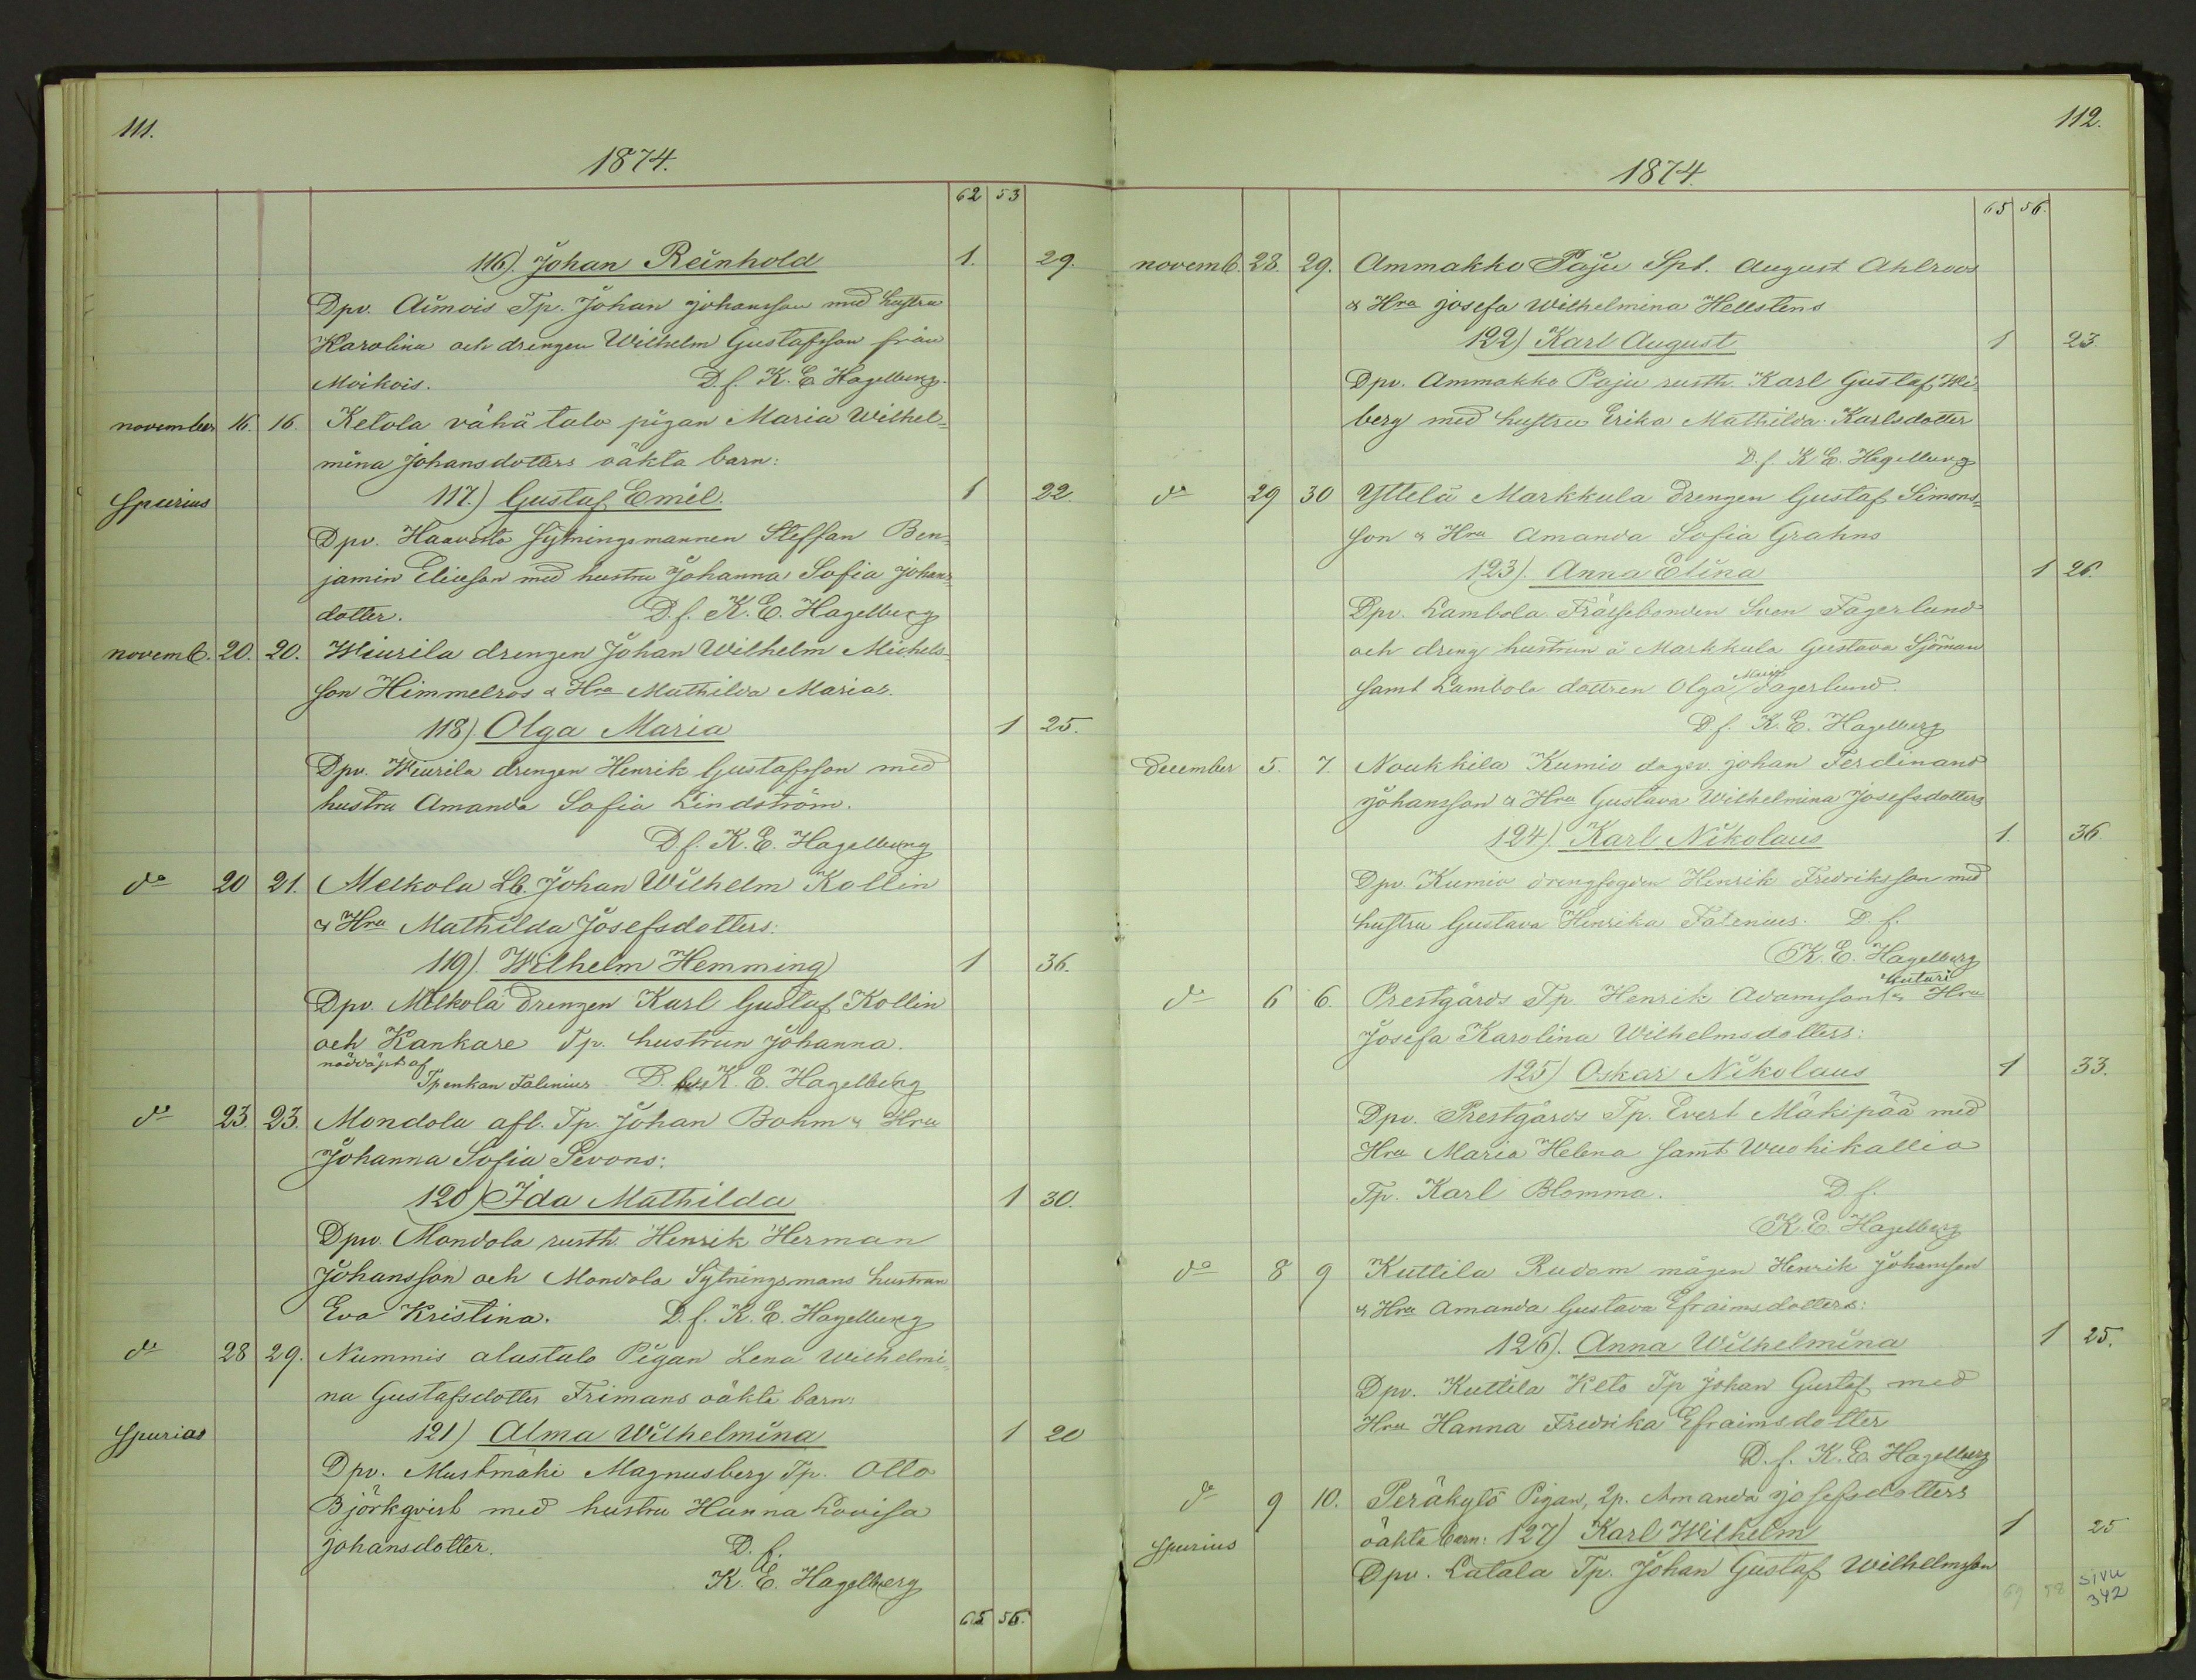 111.
1874.
62 53
116). Johan Reinhold 1. 29.
Dpv. Aimois Tp. Johan Johansson med hustru
Karolina och drengen Wilhelm Gustafsson från
Moikois. D. f. K. E. Hagelberg.
november 16. 16. Ketola vähä talo pigan Maria Wilhel=
mina Johansdotters oäkta barn:
spurius 117.) Gustaf Emil. 1 22.
Dpv. Haavisto Sytningsmannen Steffan Ben=
jamin Eliason med hustru Johanna Sofia Johans=
dotter. D. f. K. E. Hagelberg
novemb. 20. 20. Wiurila drengen Johan Wilhelm Michels=
son Himmelros & Hru Mathilda Marias.
118). Olga Maria 1 25.
Dpv. Wiurila drengen Henrik Gustafsson med
hustru Amanda Sofia Lindström.
D. f. K. E. Hagelberg
do 20 21. Melkola Lb. Johan Wilhelm Kollin
& Hru Mathilda Josefsdotters:
119). Wilhelm Hemming 1 36.
Dpv. Melkola drengen Karl Gustaf Kollin
och Kankare Tp. hustrun Johanna.
nöddöpt af
Tpenkan Falenius D. f. K. E. Hagelberg
do 23. 23. Mondola afl. Tp. Johan Bohm & Hru
Johanna Sofia Sevons:
120) Ida Mathilda 1 30.
Dpv. Mondola rusth. Henrik Herman
Johansson och Mondola Sytningsmans hustrun
Eva Kristina. D. f. K. E. Hagelberg
do 28 29. Nummis alastalo Pigan Lena Wilhelmi=
na Gustafsdotter Frimans oäkta barn:
spurias 121) Alma Wilhelmina 1 20
Dpv. Mustmäki Magnusberg Tp. Otto
Björkqvist med hustru Hanna Lovisa
Johansdotter. D. f.
K. E. Hagelberg
65 56.
112.
1874.
65 56.
novemb. 28. 29. Ammakko Paju Spt. August Ahlroos
& Hra Josefa Wilhelmina Hellstens
122) Karl August 1 23
Dpv. Ammakko Paju rusth. Karl Gustaf Wi=
berg med hustru Erika Mathilda Karlsdotter
D. f. K. E. Hagelberg
do 29 30 Yttelä Markkula drengen Gustaf Simons=
son & Hru Amanda Sofia Grahns
123). Anna Elina 1 26.
Dpv. Lambola Frälsebonden Sven Fagerlund
och dreng hustrun å Markkula Gustava Sjöman
Maria
samt Lambola dottren Olga Fagerlund.
D. f. K. E. Hagelberg
December 5. 7. Noukkila Kumio dagsv. Johan Ferdinand
Johansson & Hru Gustava Wilhelmina Josefsdotters
124) Karl Nikolaus 1. 36.
Dpv. Kumio drengfogden Henrik Fredriksson med
hustru Gustava Henrika Falenius. D. f.
K. E. Hagelberg
do 6 6. Prestgårds Tp. Henrik Adamsson & Hru
Josefa Karolina Wilhelmsdotters:
125) Oskar Nikolaus 1 33.
Dpv. Prestgårds Tp. Evert Mäkipää med
Hru Maria Helena samt Wuohikallio
Tp. Karl Blomma. D. f.
K. E. Hagelberg
do 8 9 Kuttila Rudom mågen Henrik Johansson
& Hru Amanda Gustava Efraimsdotters:
126). Anna Wilhelmina 1 25.
Dpv. Kuttila Keto Tp Johan Gustaf med
Hru Hanna Fredrika Efraimsdotter
D. f. K. E. Hagelberg
do 9 10. Peräkylä Pigan, 2p. Amanda Josefsdotters
spurius oäkta barn: 127) Karl Wilhelm 1 25
Dpv. Latala Tp. Johan Gustaf Wilhelmsson
69 58 sivu
342